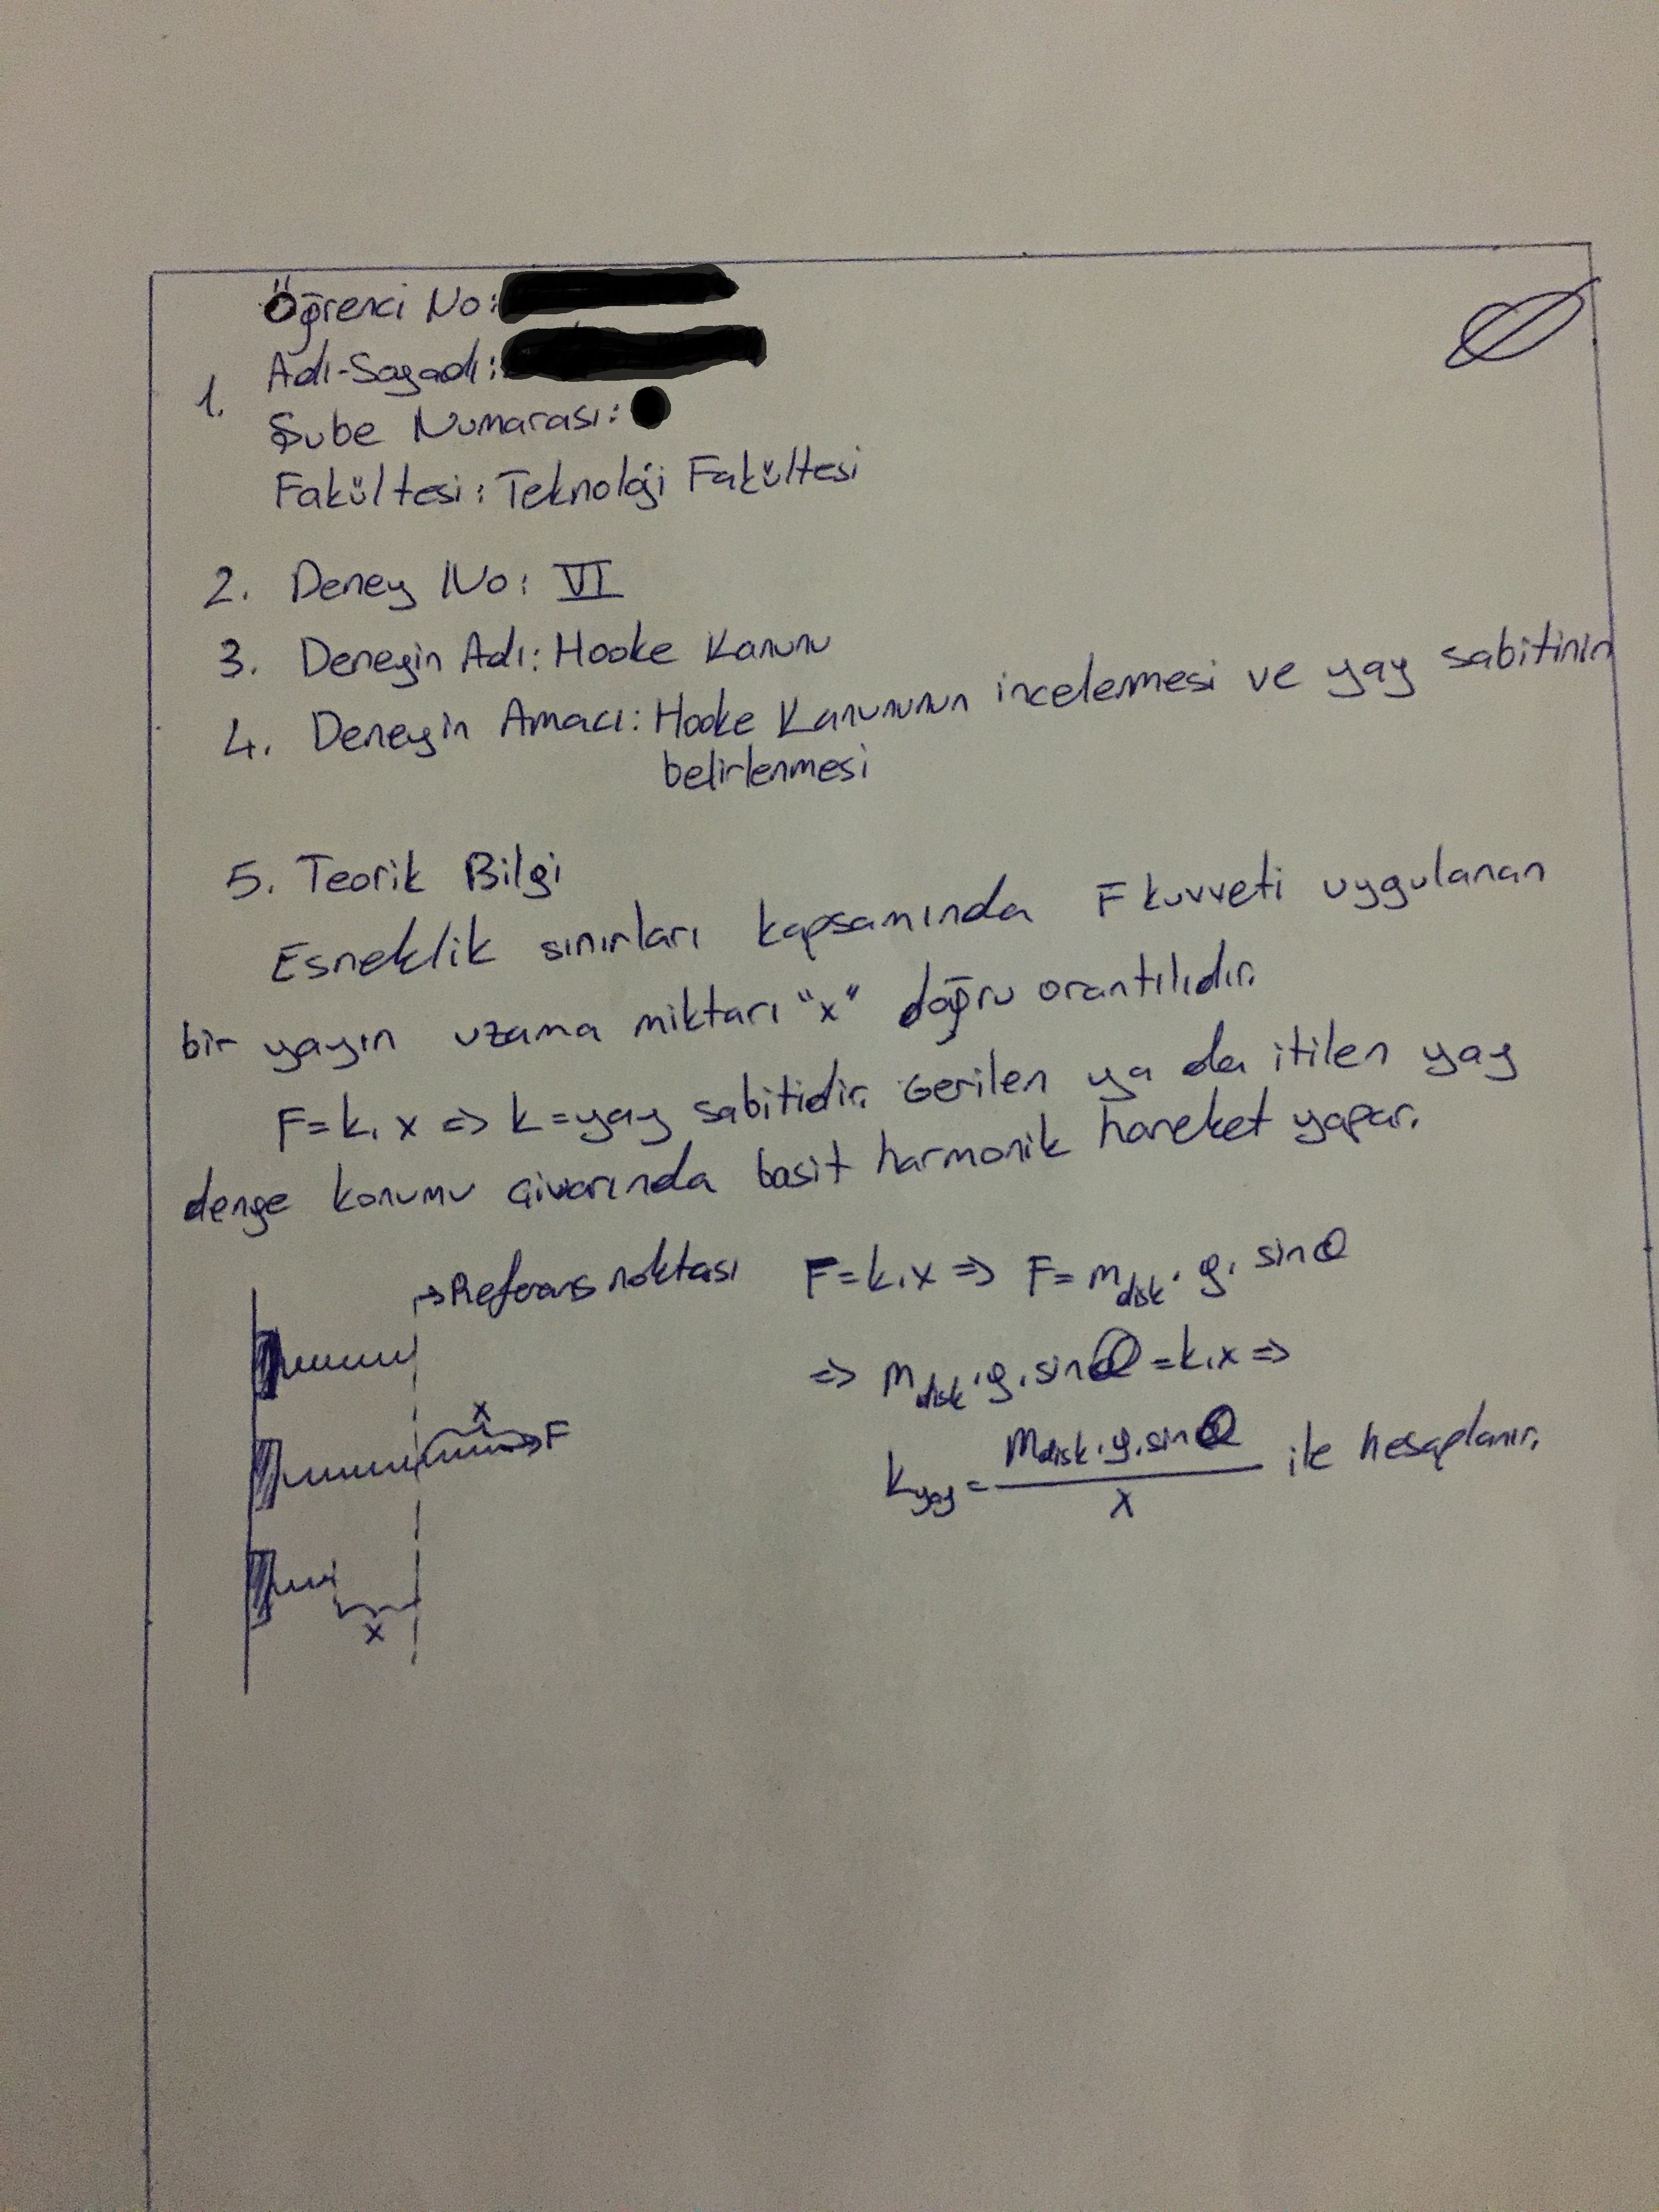 Öğrenci No:
Adı-Soyadı:
1.
Şube Numarası:
Fakültesi: Teknoloji Fakültesi
2. Deney No: VI
3. Deneyin Adı: Hooke Kanunu
4. Deneyin Amacı: Hooke Kanununun incelenmesi ve yay sabitinin
belirlenmesi
5. Teorik Bilgi
Esneklik sınırları kapsamında F kuvveti uygulanan
bir yayın uzama miktarı "x" doğru orantılıdır.
F=k.x => k=yay sabitidir. Gerilen ya da itilen yay
denge konumu civarında basit harmonik hareket yapar.
→Referans noktası
F=k.x => F=m_disk.g.sinθ
=> m_disk.g.sinθ=k.x =>
x
F
k_yay = m_disk.g.sinθ / x ile hesaplanır.
x